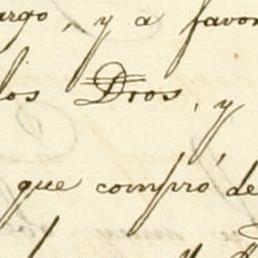 argo, y a favor
los Dros, y
que compró de